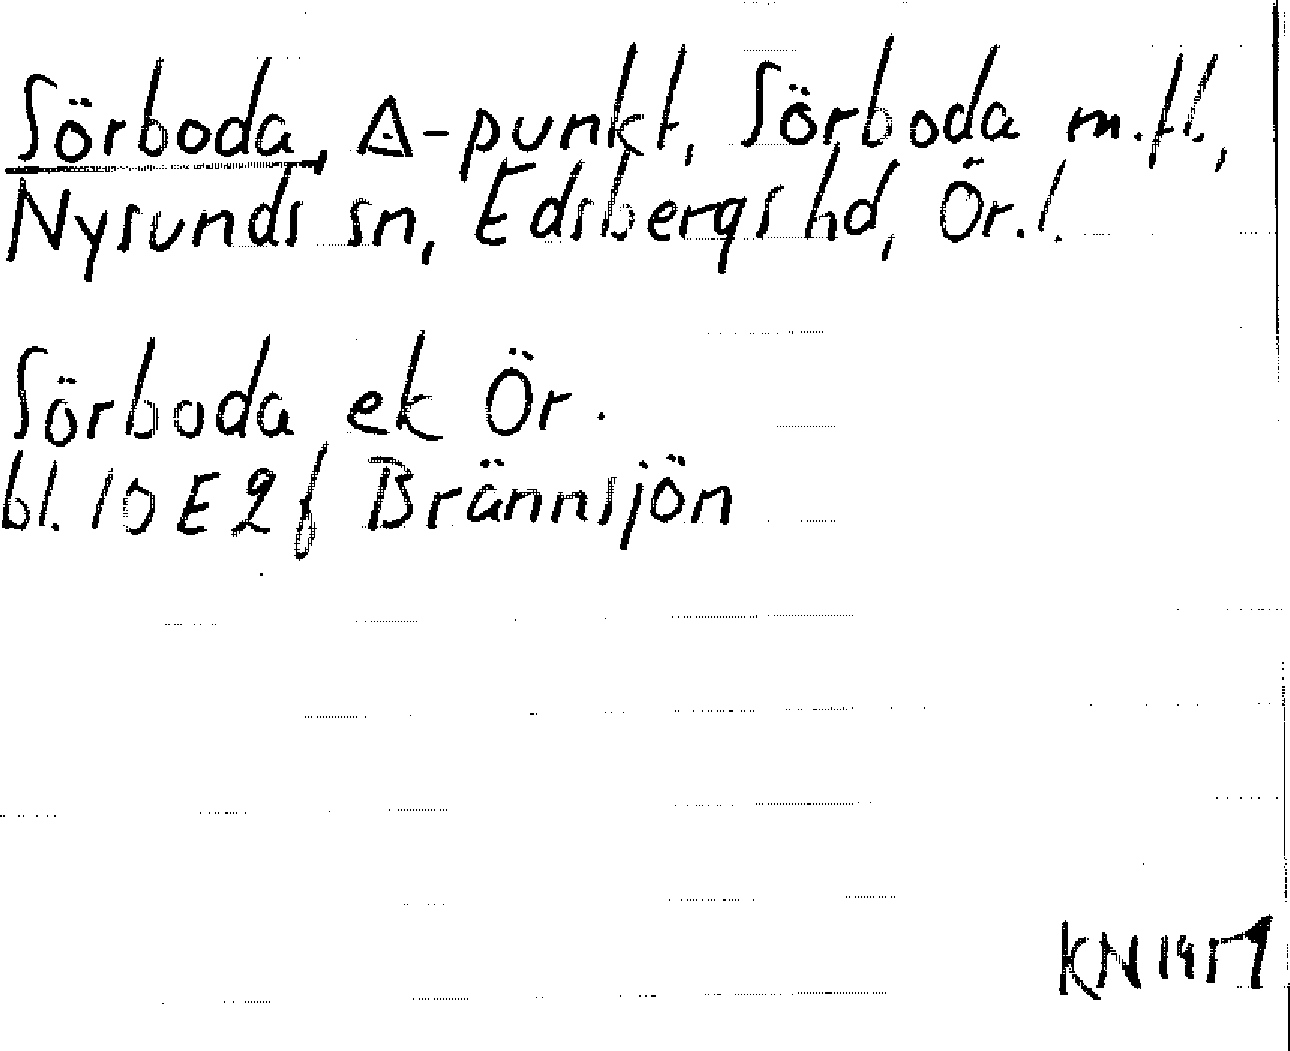 Sörboda, Δ-punkt, Sörboda m.fl.,
Nysunds sn, Edsbergs hd, Ör.l.
Sörboda ek Ör.
bl. 10E2f Brännsjön